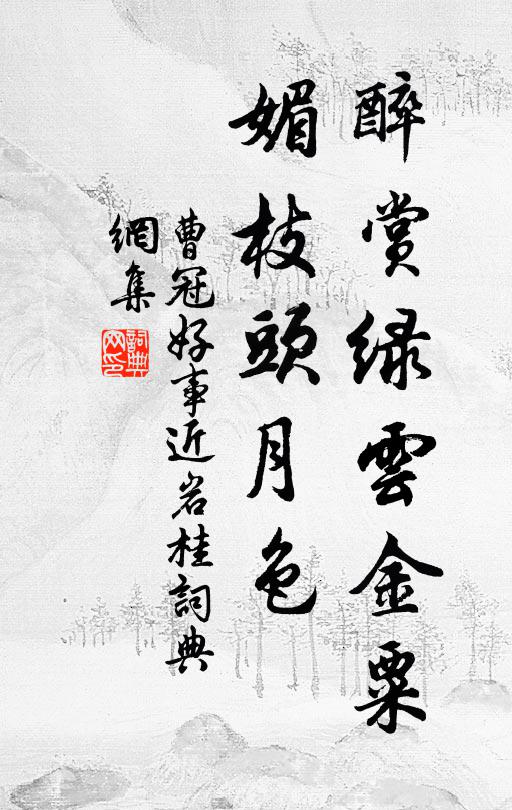 醉賞绿雲金粟
媚枝頭月色
曹冠好事近岩桂詞典
網集
詞典
网印